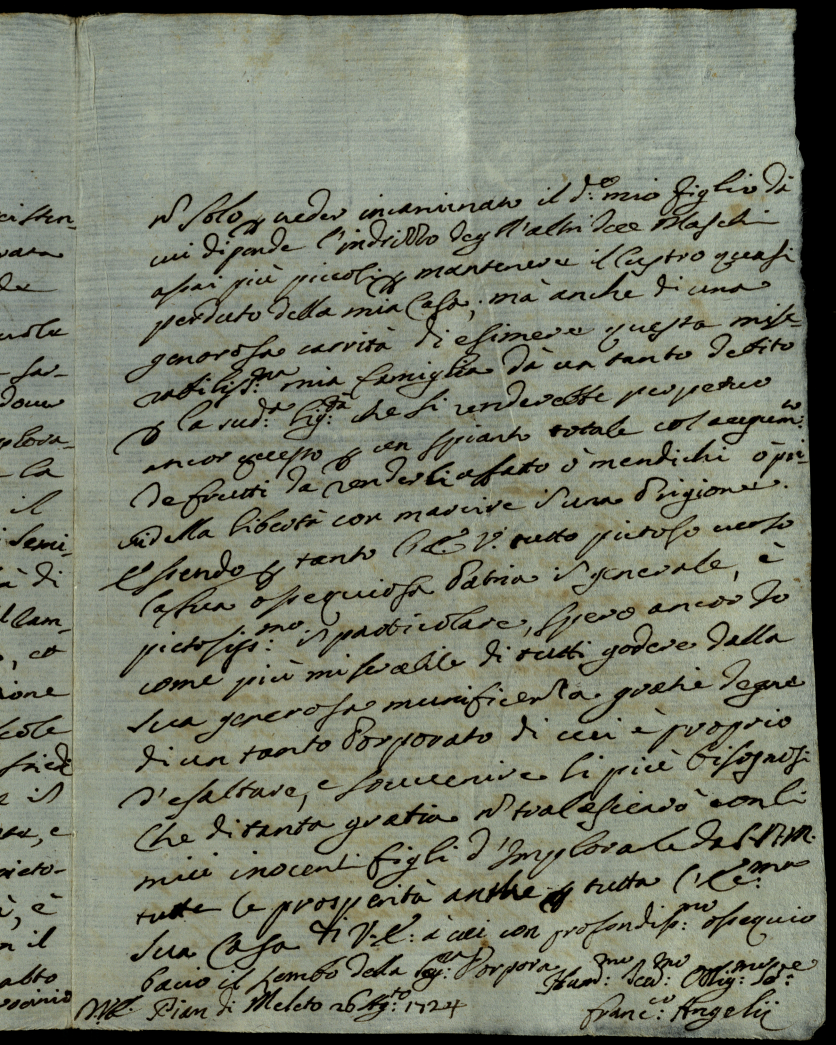 cisten-
vata
de
sa-
dove
plora-
la
il
Semi-
à di
lam-
, et
ione
cole
il
, e
pieto-
, è
n il
abto
nõ solo p veder incaminato il d.º mio figlio da
cui dipende l'indrizzo degl'altri dece Maschi
assai più piccoli, p mantenere il lustro quasi
perduto della mia Casa; mà anche di una
generosa carrità di esimere questa mise-
rabiliss.ma mia famiglia dà un tanto debito
p la sud.a sig.tà che si renderebbe perpetuo
ancor questo p un spianto totale col accum.to
de frutti da renderli affatto ò mendichi ò pri-
vi della libertà con marcire ĩ una Prigione.
Essendo p tanto l'E. V. tutto pietoso verso
la sua ossequiosa Patria ĩ generale, è
pietosiss.mo ĩ particolare, spero ancor Io
come più miserabile di tutti godere dalla
sua generosa munificenza gratie degne
di un tanto Porporato di cui è proprio
d'esaltare, e souvenire li più bisognosi
Che di tanta gratia nõ tralascierò con li
miei inocenti figli d'Implorare da S.D.M.
tutte le prosperità anche p tutta l'Ecc.ma
Sua Casa di V. E. à cui con profondiss.mo ossequio
bacio il Lembo della Sag.ra Porpora
Pian di Meleto 26 Ag.to 1724
Hum.mo Dev.mo Oblig.mo Se.re
Franc.co Angelij